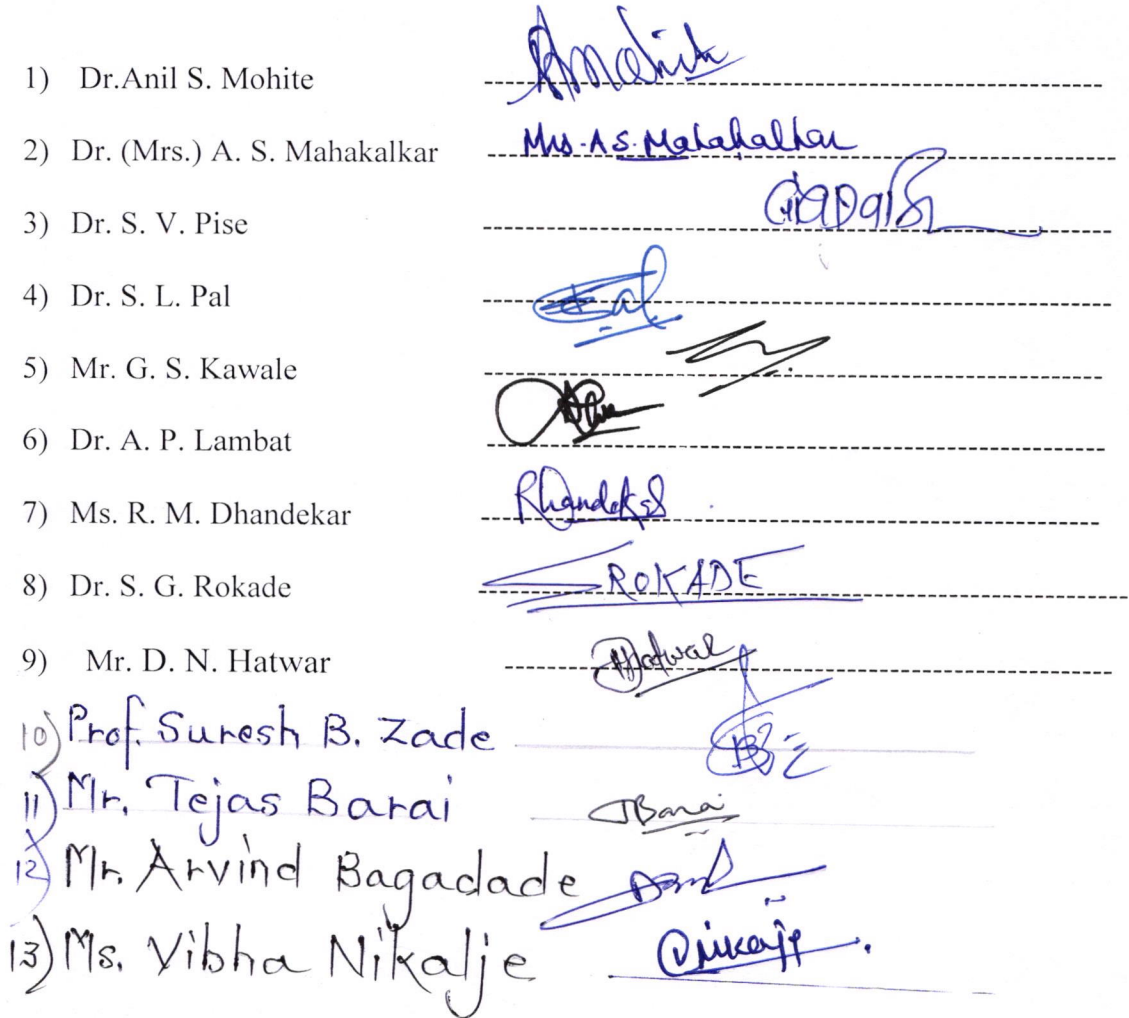 1) Dr.Anil S. Mohite
2) Dr. (Mrs.) A. S. Mahakalkar Mrs. A S. Mahakalkar
3) Dr. S. V. Pise
4) Dr. S. L. Pal
5) Mr. G. S. Kawale
6) Dr. A. P. Lambat
7) Ms. R. M. Dhandekar
8) Dr. S. G. Rokade ROKADE
9) Mr. D. N. Hatwar Hatwar
10) Prof. Suresh B. Zade
11) Mr. Tejas Barai TBarai
12) Mr. Arvind Bagadade
13) Ms. Vibha Nikalje